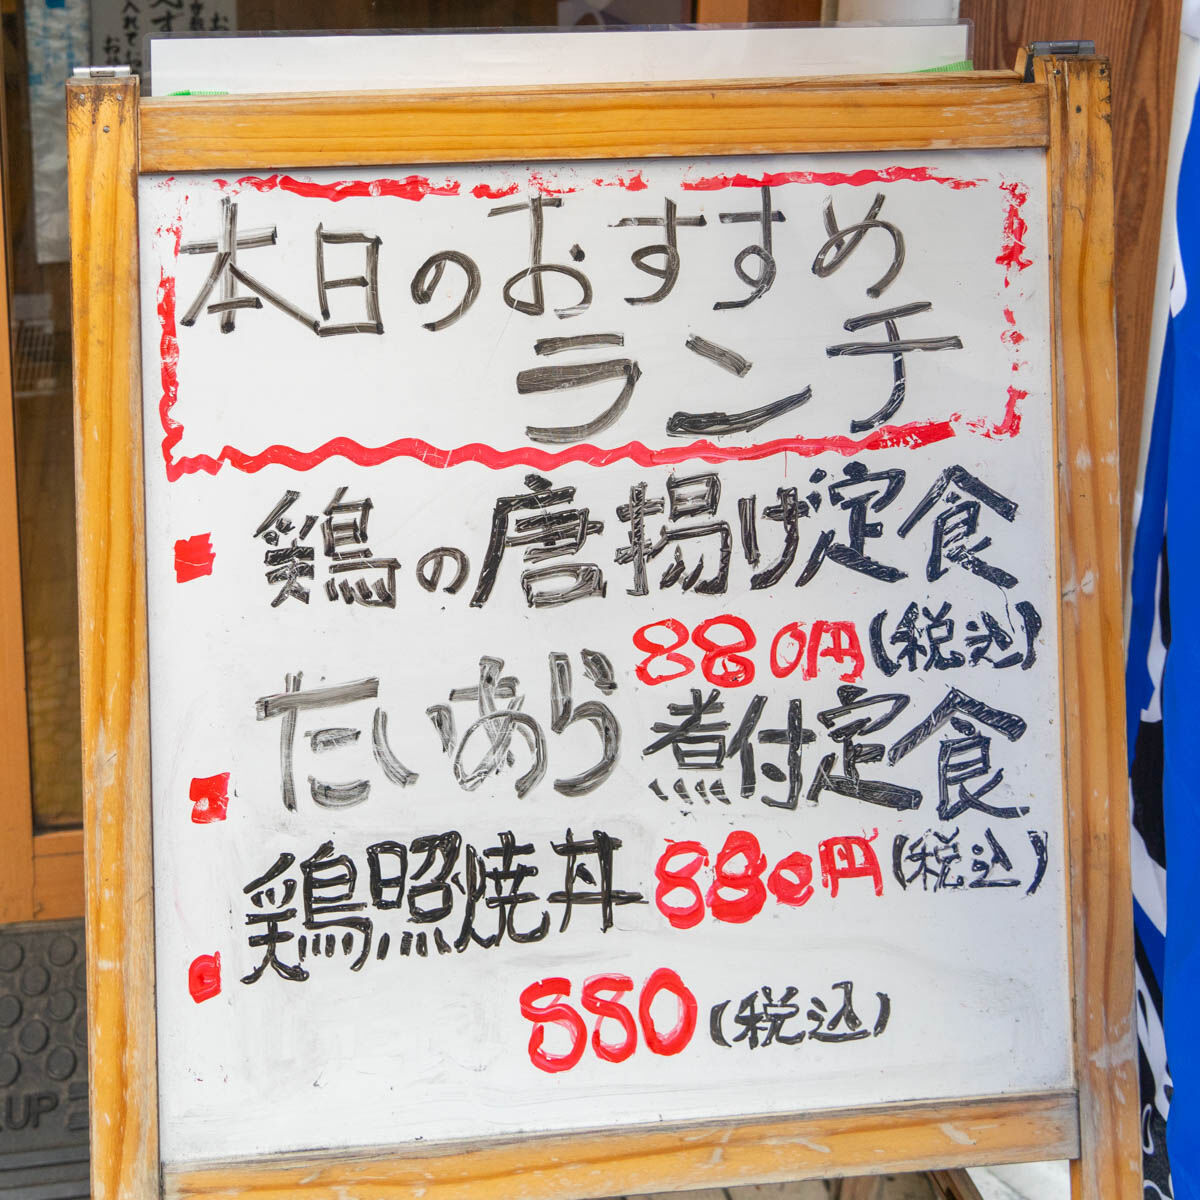 本日のおすすめ
ランチ
鶏の唐揚げ定食
880円(税込)
たいあら煮付定食
880円(税込)
鶏照焼丼
880(税込)
UP